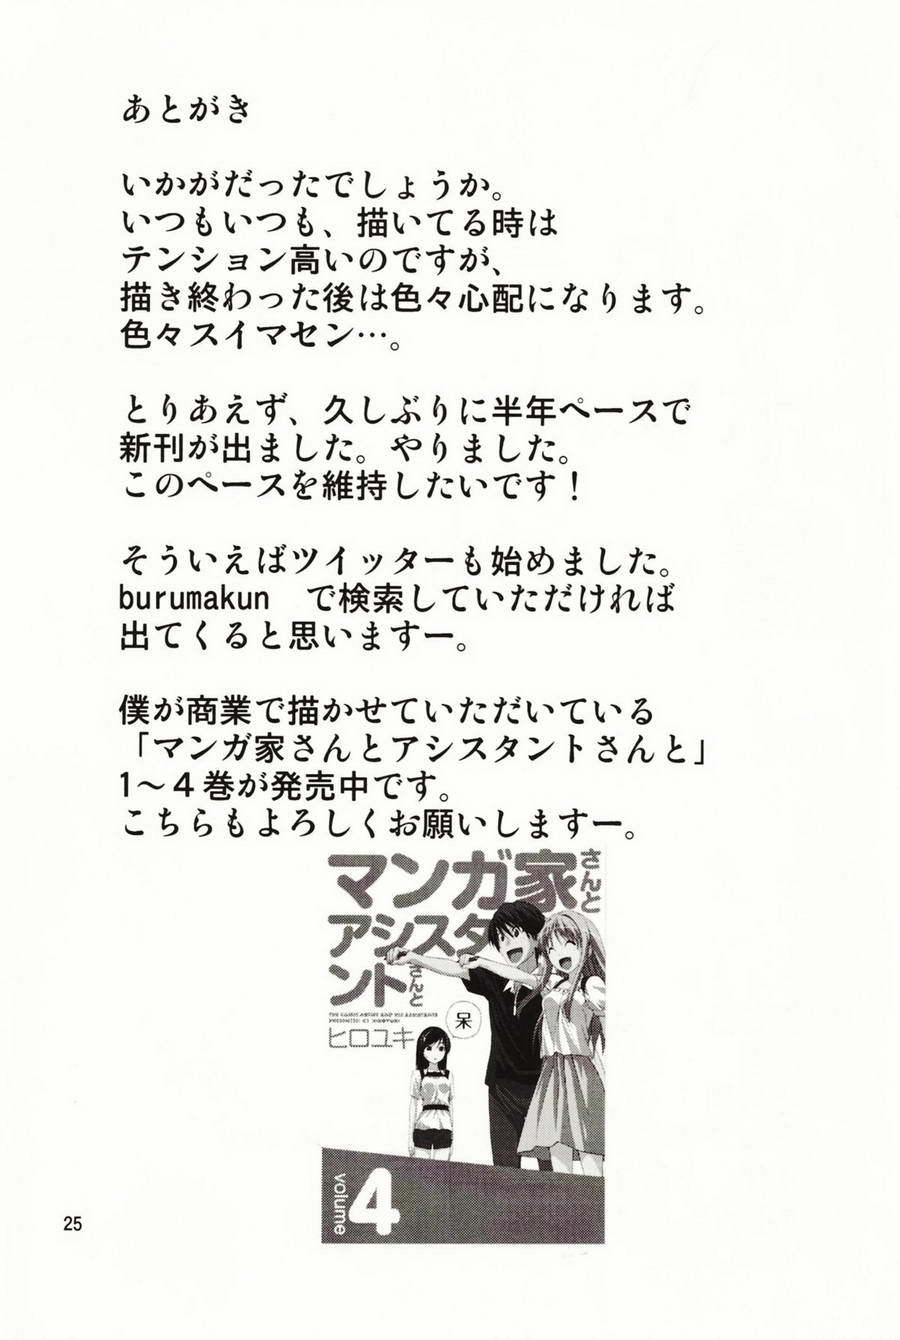 あとがき
いかがだったでしょうか。
いつもいつも、描いてる時は
テンション高いのですが、
描き終わった後は色々心配になります。
色々スイマセン…。
とりあえず、久しぶりに半年ペースで
新刊が出ました。やりました。
このペースを維持したいです！
そういえばツイッターも始めました。
burumakun　で検索していただければ
出てくると思いますー。
僕が商業で描かせていただいている
「マンガ家さんとアシスタントさんと」
1～4巻が発売中です。
こちらもよろしくお願いしますー。
マンガ家さんと
アシスタ
ントさんと
THE COMIC ARTIST AND HIS ASSISTANTS
PRESENTED BY HIROYUKI
ヒロユキ
呆
volume 4
25